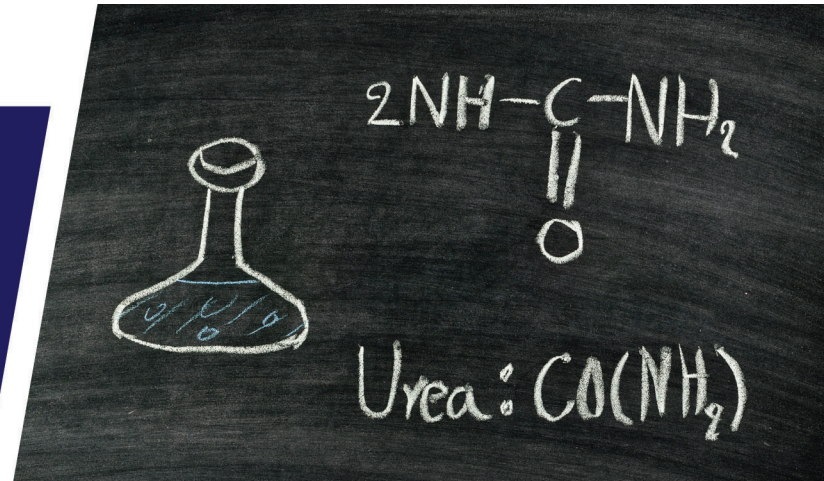 2NH-C-NH₂
||
O
Urea: CO(NH₂)